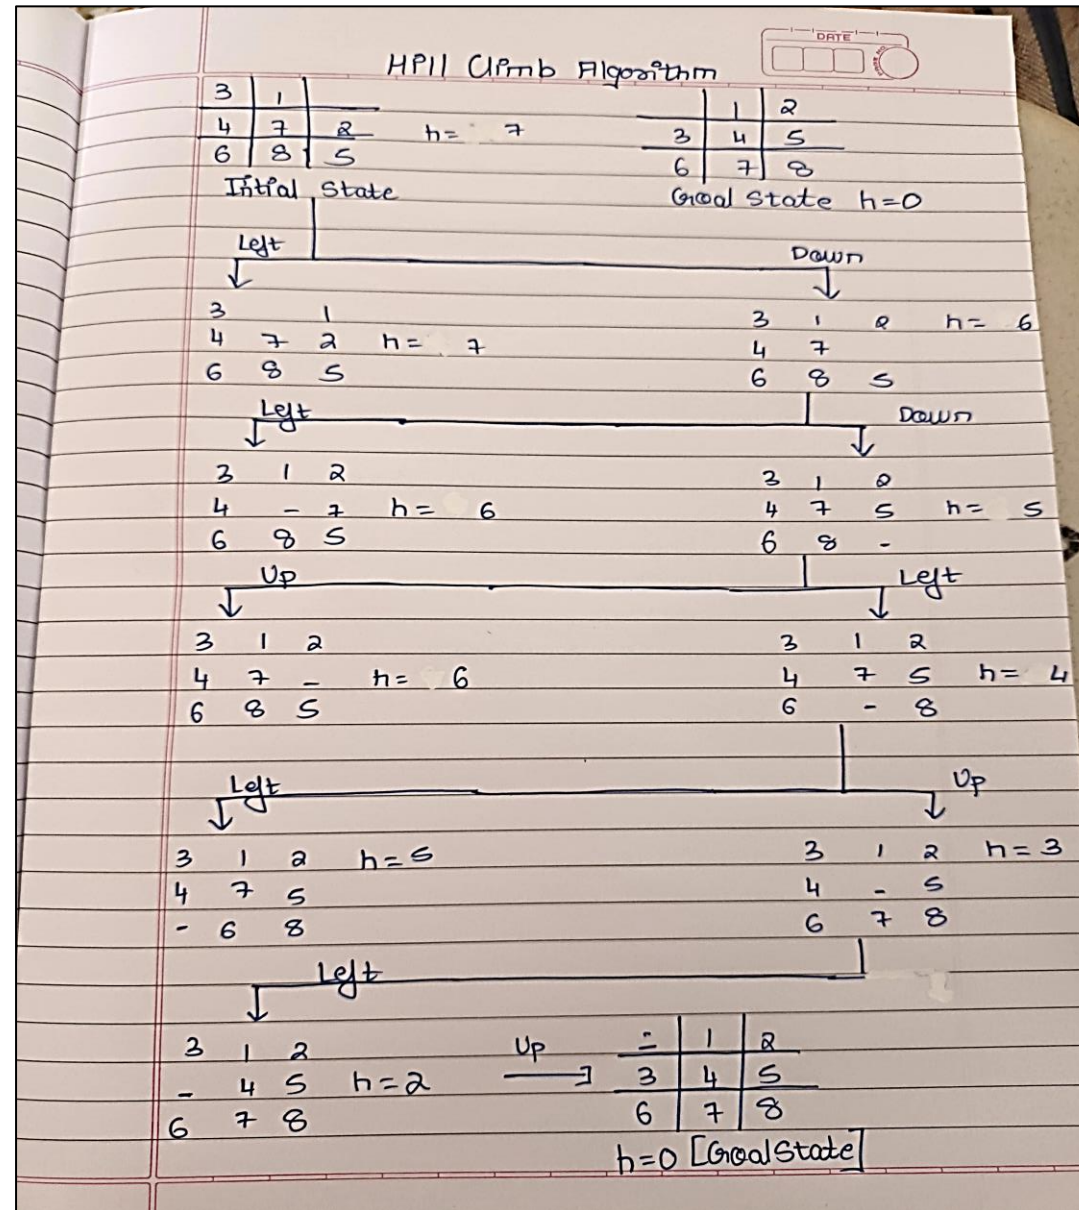 DATE
Hill Climb Algorithm
3 1
4 7 2 h= 7
6 8 5
Intial State
1 2
3 4 5
6 7 8
Goal State h=0
Left
Down
3 1
4 7 2 h= 7
6 8 5
3 1 2 h= 6
4 7
6 8 5
Left
Down
3 1 2
4 - 7 h= 6
6 8 5
3 1 2
4 7 5 h= 5
6 8 -
Up
Left
3 1 2
4 7 - h= 6
6 8 5
3 1 2
4 7 5 h= 4
6 - 8
Left
Up
3 1 2 h=5
4 7 5
- 6 8
3 1 2 h=3
4 - 5
6 7 8
Left
3 1 2
- 4 5 h=2
6 7 8
Up
- 1 2
3 4 5
6 7 8
h=0 [Goal State]